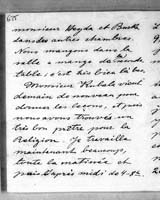 65
monsieur Heyda et Burke
dans des autres chambres.
Nous mangeons dans la
salle a manger de monde
table; c'est très bien là bas.
Monsieur Kubelik vient
demain de nouveau pour
donner les leçons, et puis
nous avons trouvés un
très bon prêtre pour la
Religion. Je travaille
maintenant beaucoup,
toute la matinée et
puis l'après midi de 4-8½.